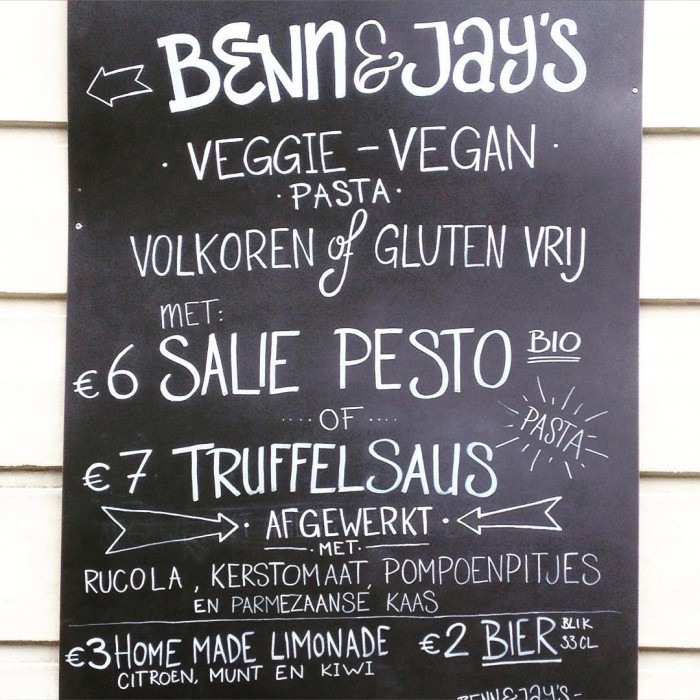 BENN&JAY'S
· VEGGIE - VEGAN ·
· PASTA ·
VOLKOREN of GLUTEN VRIJ
MET:
€6 SALIE PESTO BIO
····· OF ····
PASTA
€7 TRUFFELSAUS
· AFGEWERKT ·
· MET ·
RUCOLA, KERSTOMAAT, POMPOENPITJES
EN PARMEZAANSE KAAS
€3 HOME MADE LIMONADE
CITROEN, MUNT EN KIWI
€2 BIER BLIK
33CL
BENN&JAY'S -